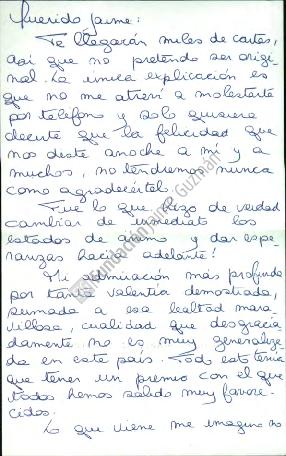 Querido Jaime:
Te llegarán miles de cartas,
así que no pretendo ser origi-
nal. La unica explicación es
que no me atreví a molestarte
por teléfono y solo quisiera
decirte que la felicidad que
nos diste anoche a mí y a
muchos, no tendremos nunca
como agradecértel.
Fue lo que hizo de verdad
cambiar de inmediato los
estados de animo y dar espe-
ranzas hacia adelante!
Mi admiración más profunda
por tanta valentía demostrada,
sumada a esa lealtad mara-
villosa, cualidad que desgracia-
damente no es muy generaliza-
da en este país. Todo esto tenía
que tener un premio con el que
todos hemos salido muy favore-
cidos.
Lo que viene me imagino no
Fundación Jaime Guzmán